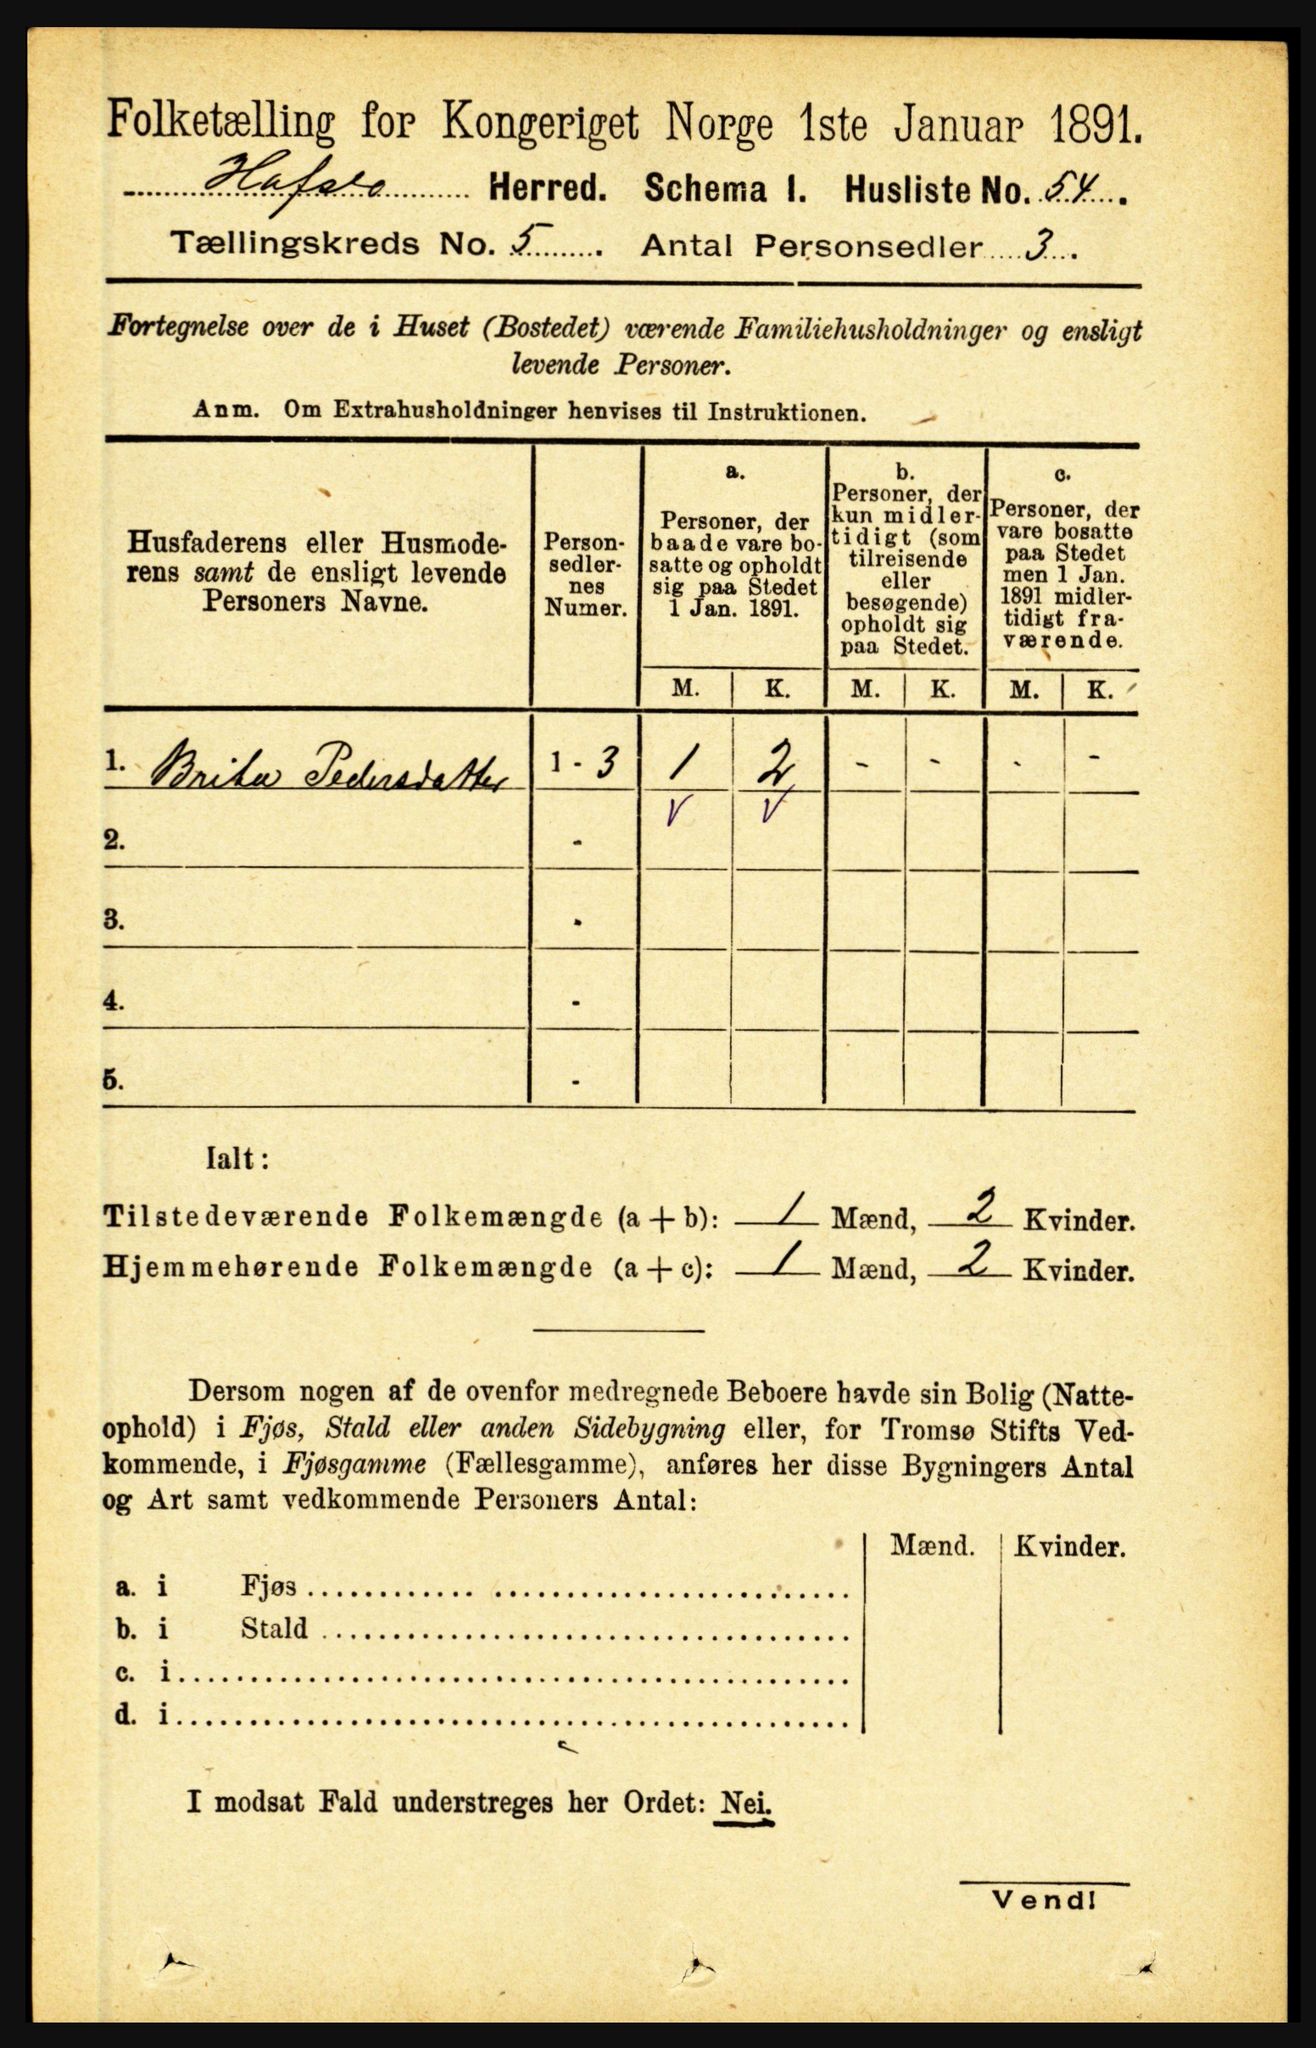 Folketælling for Kongeriget Norge 1ste Januar 1891.
Hafslo Herred. Schema I. Husliste No. 54.
Tællingskreds No. 5. Antal Personsedler 3.
Fortegnelse over de i Huset (Bostedet) værende Familiehusholdninger og ensligt
levende Personer.
Anm. Om Extrahusholdninger henvises til Instruktionen.
Husfaderens eller Husmode-
rens samt de ensligt levende
Personers Navne.
Person-
sedler-
nes
Numer.
a.
Personer, der
baade vare bo-
satte og opholdt
sig paa Stedet
1 Jan. 1891.
b.
Personer, der
kun midler-
tidigt (som
tilreisende
eller
besøgende)
opholdt sig
paa Stedet.
c.
Personer, der
vare bosatte
paa Stedet
men 1 Jan.
1891 midler-
tidigt fra-
værende.
M. K. M. K. M. K.
1. Brita Pedersdatter 1 - 3 1 2 - - - -
2. - v v
3. -
4. -
5. -
Ialt:
Tilstedeværende Folkemængde (a + b): 1 Mænd, 2 Kvinder.
Hjemmehørende Folkemængde (a + c): 1 Mænd, 2 Kvinder.
Dersom nogen af de ovenfor medregnede Beboere havde sin Bolig (Natte-
ophold) i Fjøs, Stald eller anden Sidebygning eller, for Tromsø Stifts Ved-
kommende, i Fjøsgamme (Fællesgamme), anføres her disse Bygningers Antal
og Art samt vedkommende Personers Antal:
Mænd. Kvinder.
a. i Fjøs
b. i Stald
c. i
d. i
I modsat Fald understreges her Ordet: Nei.
Vend!